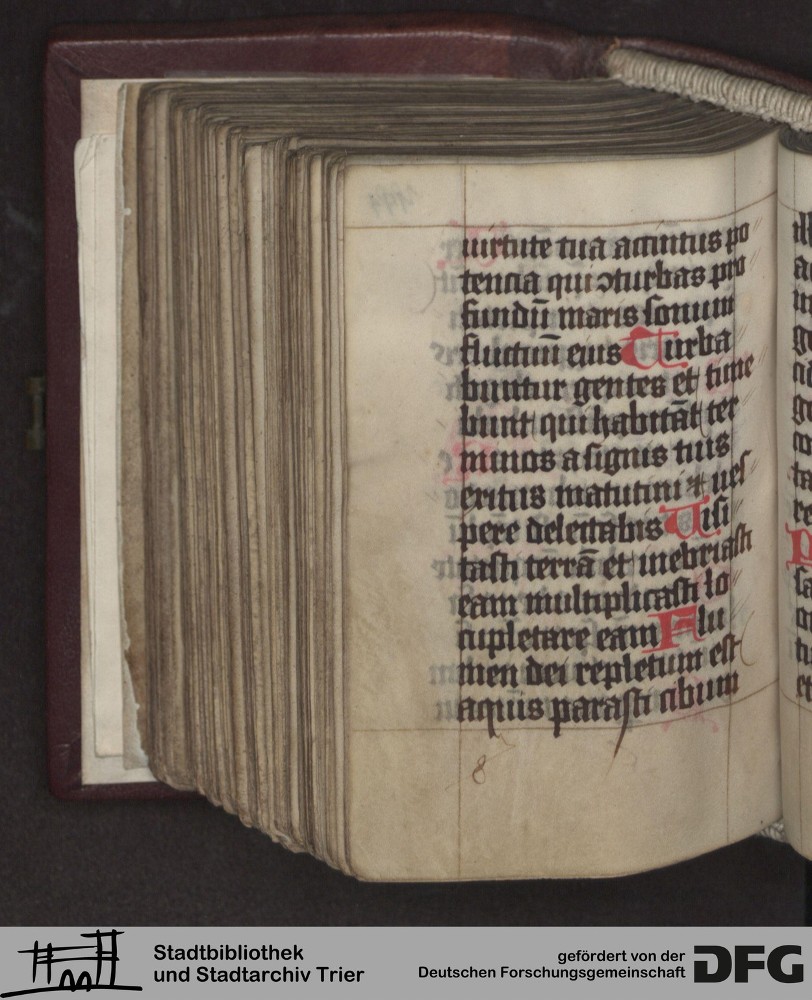 uirtute tua accintus po
tencia qui ꝯturbas pro
fundū maris sonum
fluctuū eius Turba
buntur gentes et time
bunt qui habitāt ter
minos a signis tuis
exitus matutini ⁊ ues
pere delectabis Uisi
tasti terrā et inebriasti
eam multiplicasti lo
cupletare eam Flu
men dei repletum est
aquis parasti cibum
8
Stadtbibliothek
und Stadtarchiv Trier
gefördert von der
Deutschen Forschungsgemeinschaft
DFG